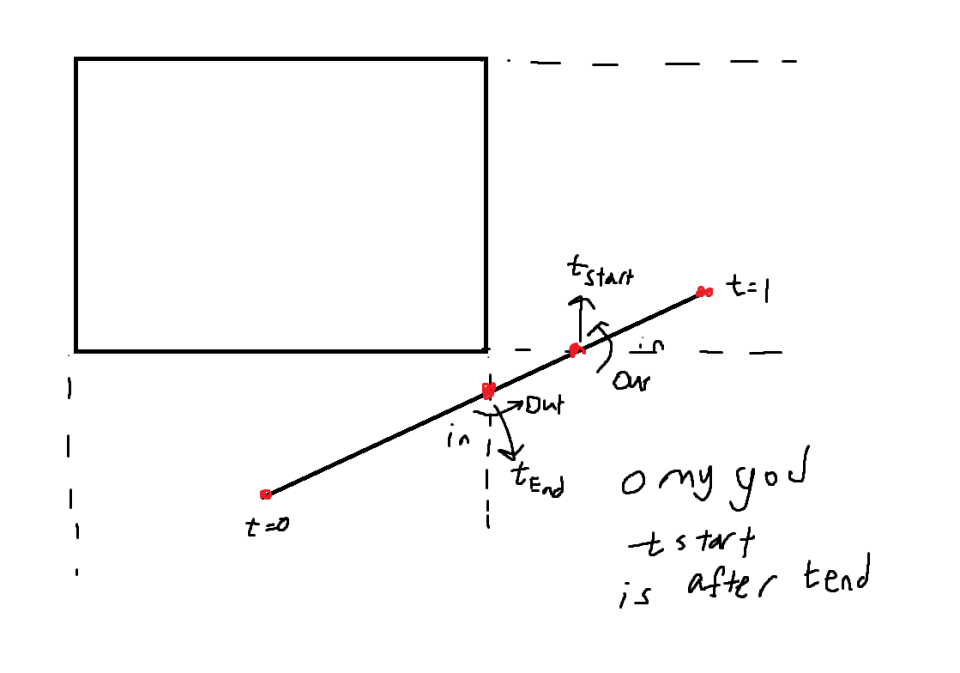 tstart
t=1
in
Our
Out
in
tEnd
t=0
o my god
tstart
is after tend